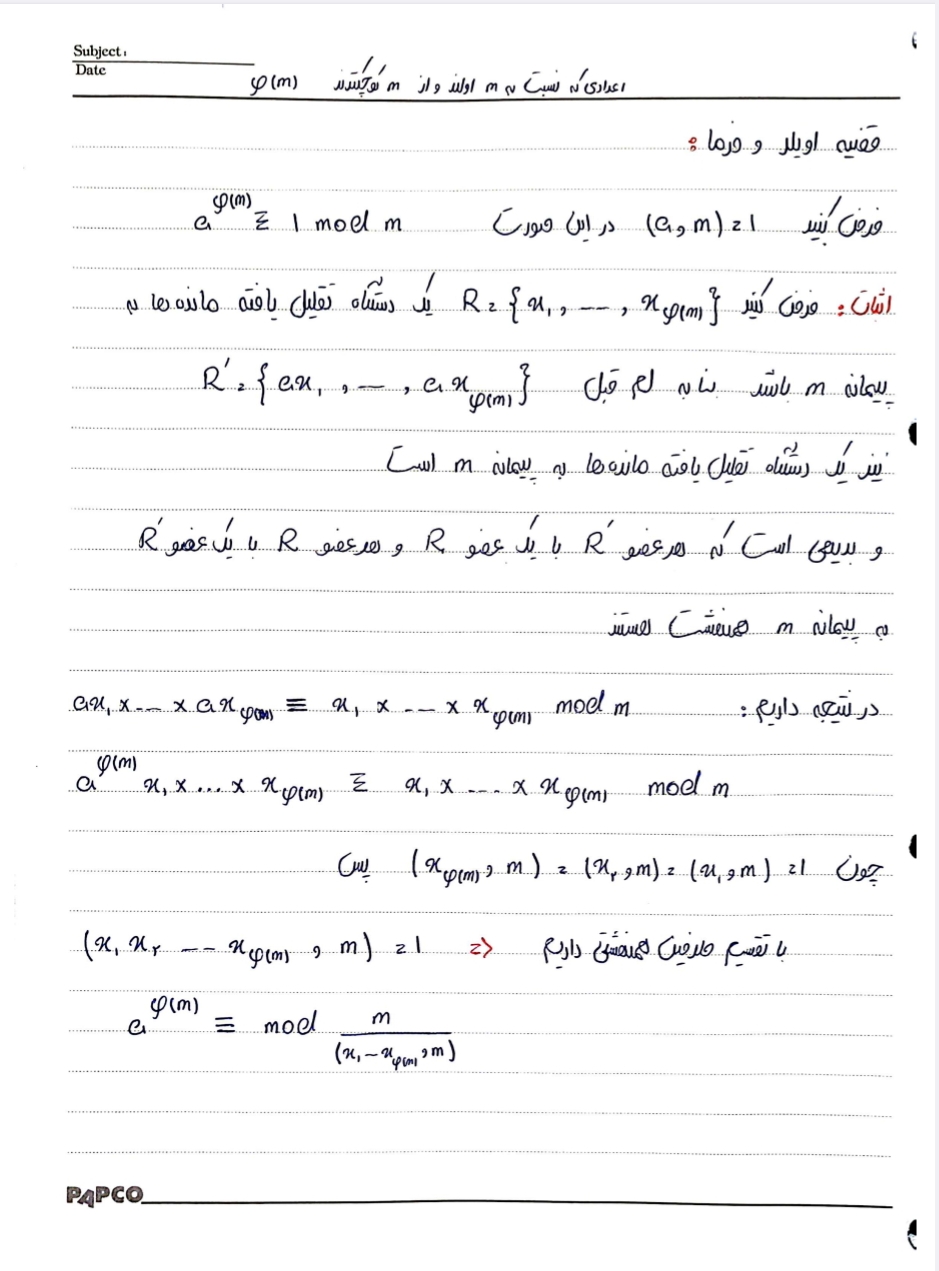 Subject:
Date
اعدادی که نسبت به m اولند و از m کوچکترند φ(m)
قضیه اویلر و فرما :
فرض کنید (a, m) = 1 در این صورت a^φ(m) ≡ 1 mod m
اثبات : فرض کنید R = {x₁, --, x_φ(m)} یک دستگاه تقلیل یافته مانده ها به
پیمانه m باشد بنا به لم قبل R' = {ax₁, —, ax_φ(m)}
نیز یک دستگاه تقلیل یافته مانده ها به پیمانه m است
و بدیهی است که هر عضو R' با یک عضو R و هر عضو R با یک عضو R'
به پیمانه m همنهشت هستند
در نتیجه داریم : ax₁ x -- x ax_φ(m) ≡ x₁ x -- x x_φ(m) mod m
a^φ(m) x₁ x ... x x_φ(m) ≡ x₁ x --- x x_φ(m) mod m
چون (x_φ(m), m) = (x₂, m) = (x₁, m) = 1 پس
(x₁ x₂ -- x_φ(m), m) = 1 => با تقسیم طرفین همنهشتی داریم
a^φ(m) ≡ mod m/(x₁ – x_φ(m), m)
PAPCO